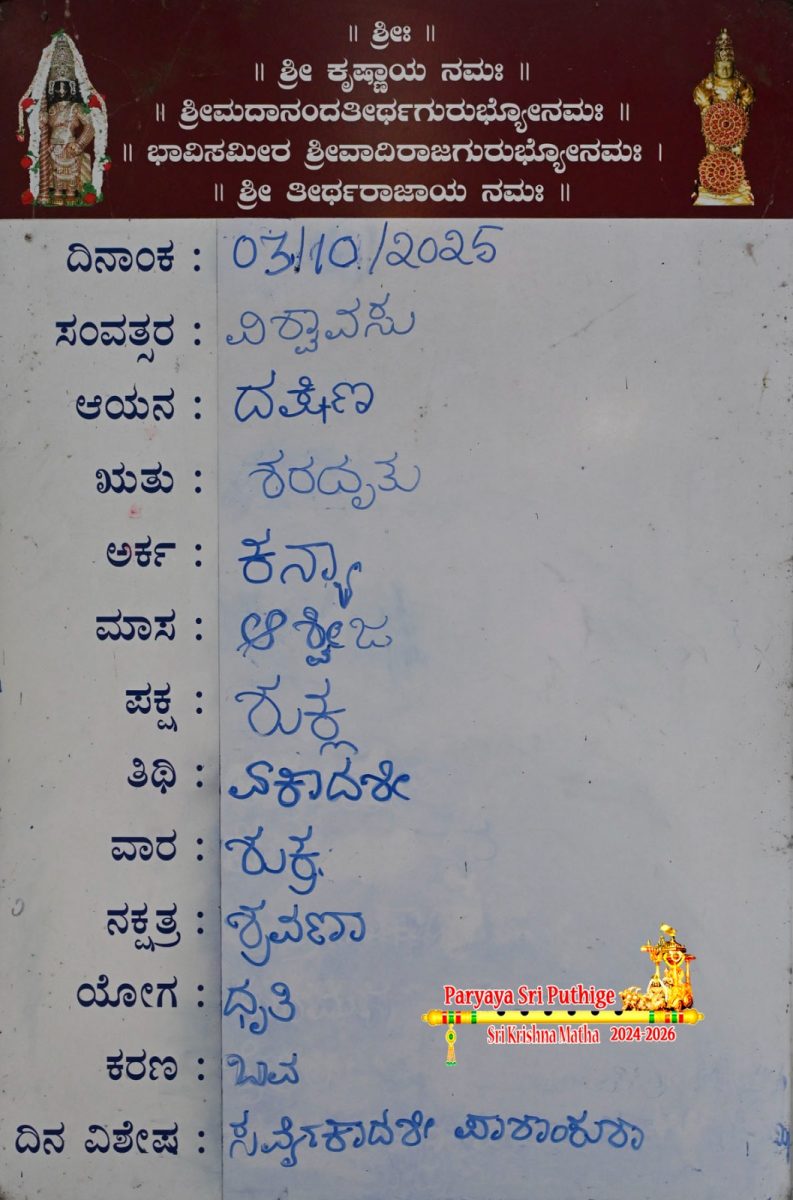 ॥ ಶ್ರೀಃ ॥
॥ ಶ್ರೀ ಕೃಷ್ಣಾಯ ನಮಃ ॥
॥ ಶ್ರೀಮದಾನಂದತೀರ್ಥಗುರುಭ್ಯೋನಮಃ ॥
॥ ಭಾವಿಸಮೀರ ಶ್ರೀವಾದಿರಾಜಗುರುಭ್ಯೋನಮಃ ।
॥ ಶ್ರೀ ತೀರ್ಥರಾಜಾಯ ನಮಃ ॥
ದಿನಾಂಕ : 03/10/2025
ಸಂವತ್ಸರ : ವಿಶ್ವಾವಸು
ಆಯನ : ದಕ್ಷಿಣ
ಋತು : ಶರದೃತು
ಅರ್ಕ : ಕನ್ಯಾ
ಮಾಸ : ಆಶ್ವೀಜ
ಪಕ್ಷ : ಶುಕ್ಲ
ತಿಥಿ : ಏಕಾದಶೀ
ವಾರ : ಶುಕ್ರ
ನಕ್ಷತ್ರ : ಶ್ರವಣಾ
ಯೋಗ : ಧೃತಿ
Paryaya Sri Puthige
Sri Krishna Matha 2024-2026
ಕರಣ : ಬವ
ದಿನ ವಿಶೇಷ : ಸರ್ವೈಕಾದಶೀ ಪಾಶಾಂಕುಶಾ